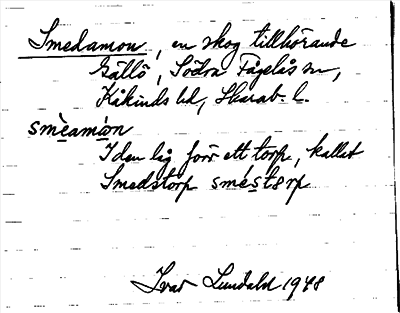 Smedamon, en skog tillhörande
Gällö, Södra Fågelås sn,
Kåkinds hd, Skarab. l.
smèamòn
I den låg förr ett torp, kallat
Smedstorp smést8rp
Ivar Lundahl 1948